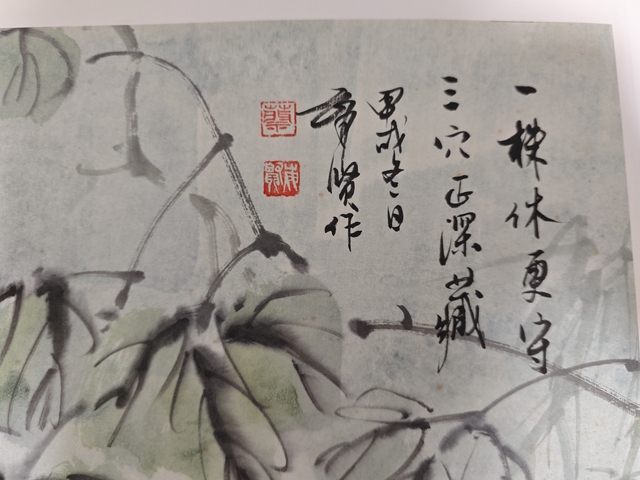 一株休更守
三穴正深藏
甲戌冬日
賢作